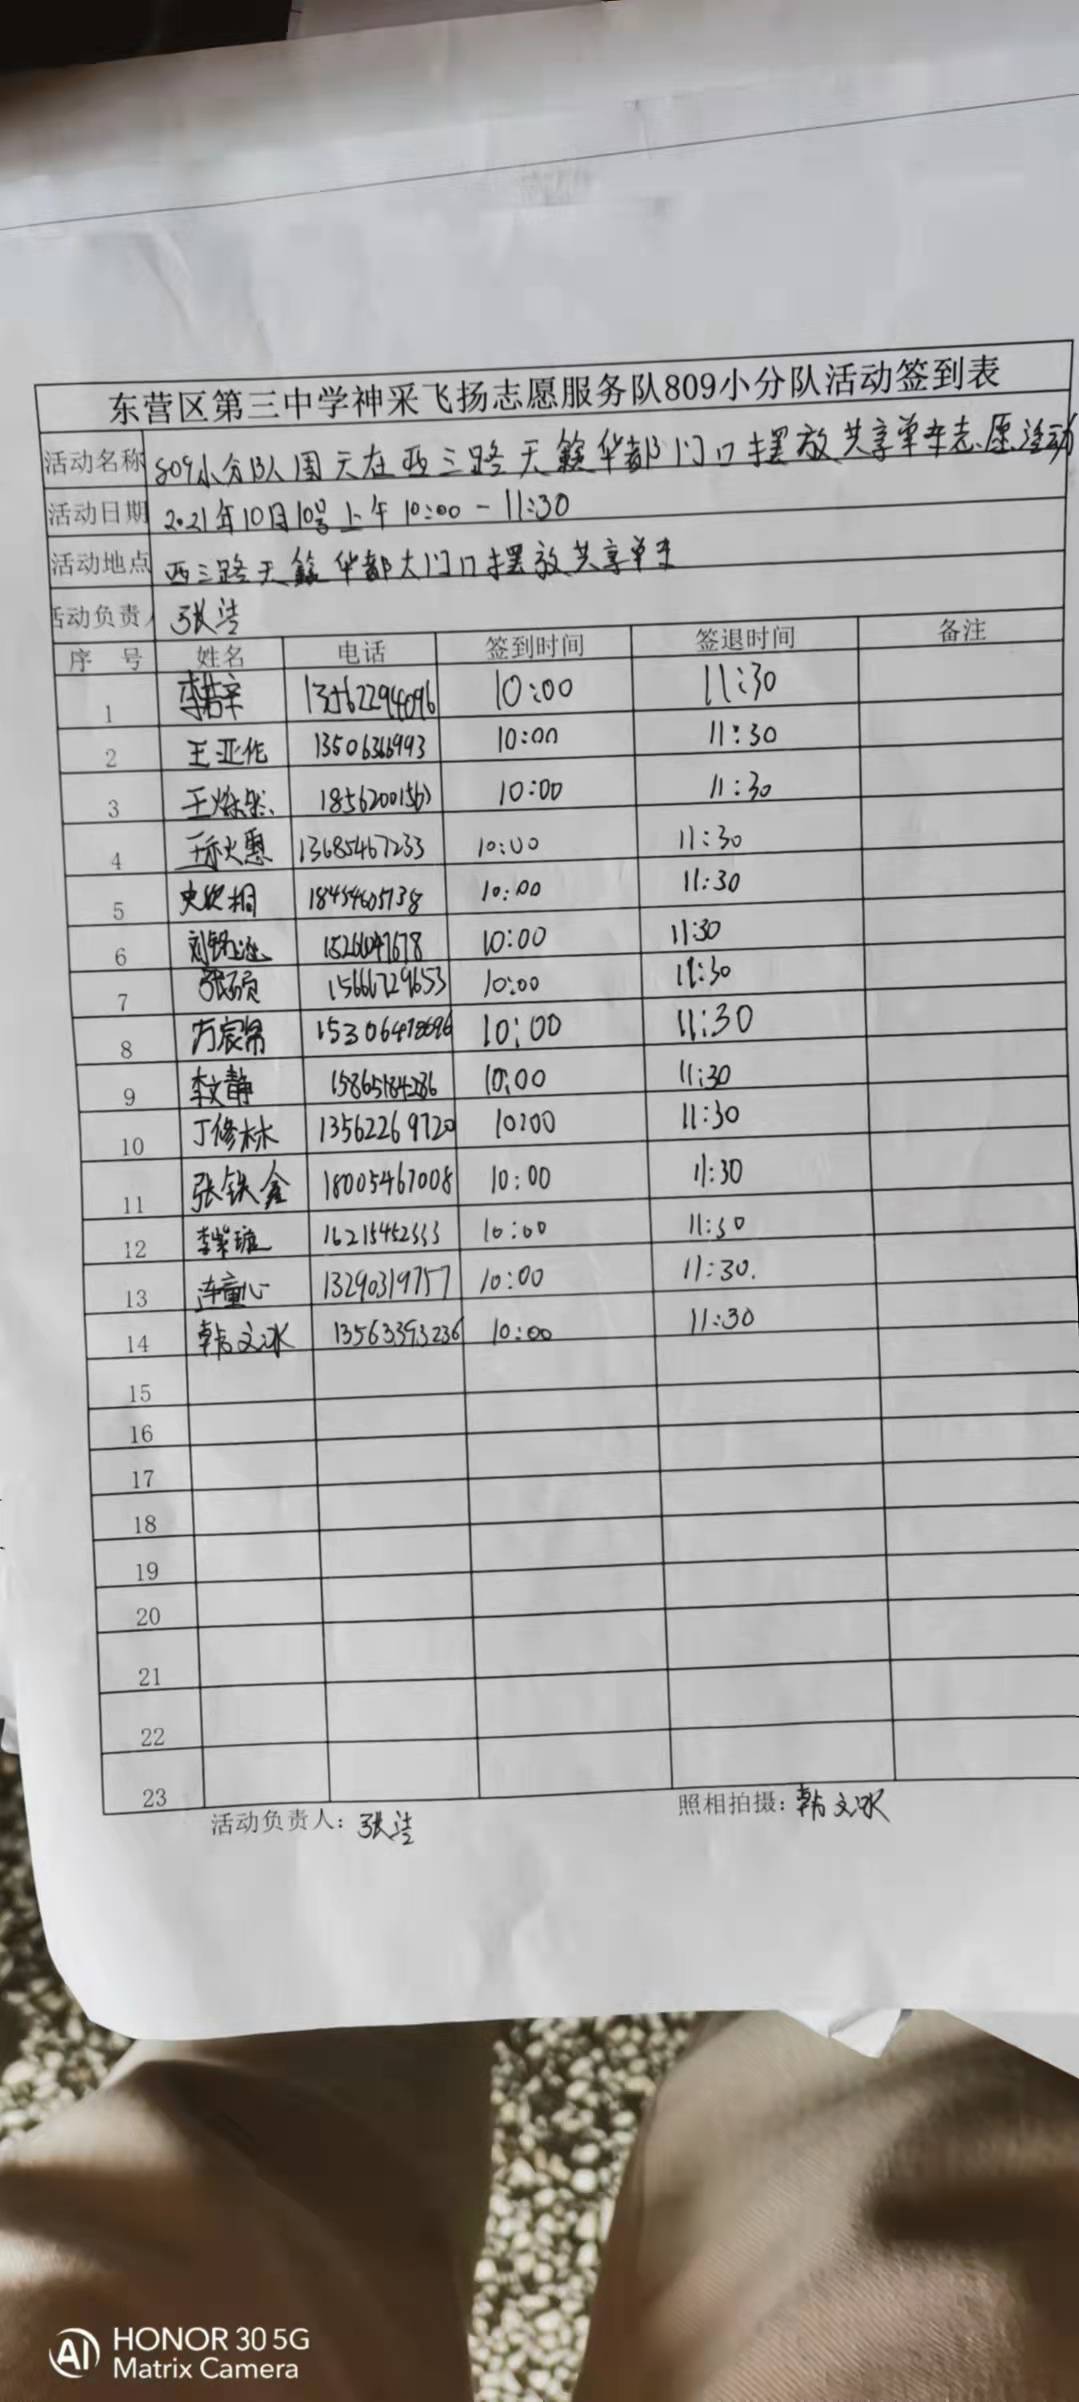 东营区第三中学神采飞扬志愿服务队809小分队活动签到表
活动名称 809小分队周天在西三路天籁华都门口摆放共享单车志愿活动
活动日期 2021年10月10号上午10:00-11:30
活动地点 西三路天籁华都大门口摆放共享单车
活动负责人 张洁
序号 姓名 电话 签到时间 签退时间 备注
1 13562294096 10:00 11:30
2 王亚伦 13506366993 10:00 11:30
3 10:00 11:30
4 13685467233 10:00 11:30
5 18454605738 10:00 11:30
6 10:00 11:30
7 张硕 15666729653 10:00 11:30
8 10:00 11:30
9 李文静 15865184286 10:00 11:30
10 丁修林 13562269720 10:00 11:30
11 张铁鑫 18005467008 10:00 11:30
12 10:00 11:30
13 连童心 13290319757 10:00 11:30.
14 韩文冰 13563393236 10:00 11:30
15
16
17
18
19
20
21
22
23
活动负责人：张洁 照相拍摄：韩文冰
AI HONOR 30 5G
Matrix Camera